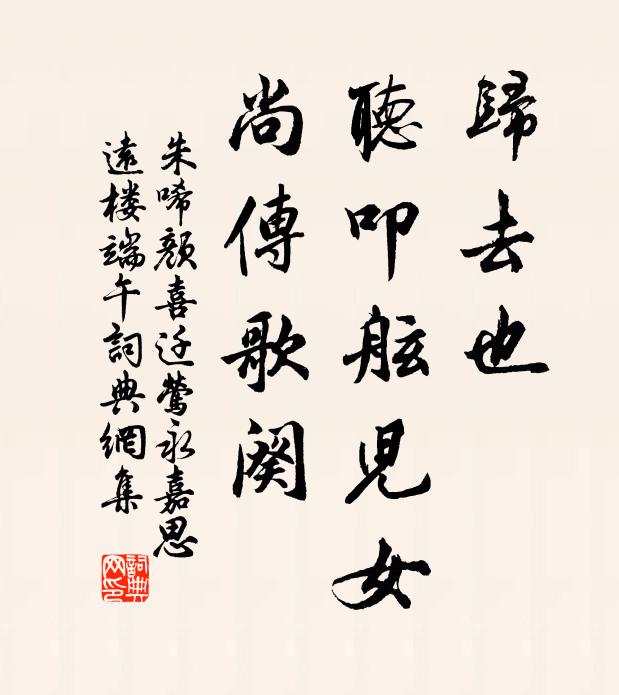 歸去也
聽叩舷兒女
尚傳歌闋
朱唏顏喜迁鶯永嘉思
遠楼端午詞典網集
詞典网印